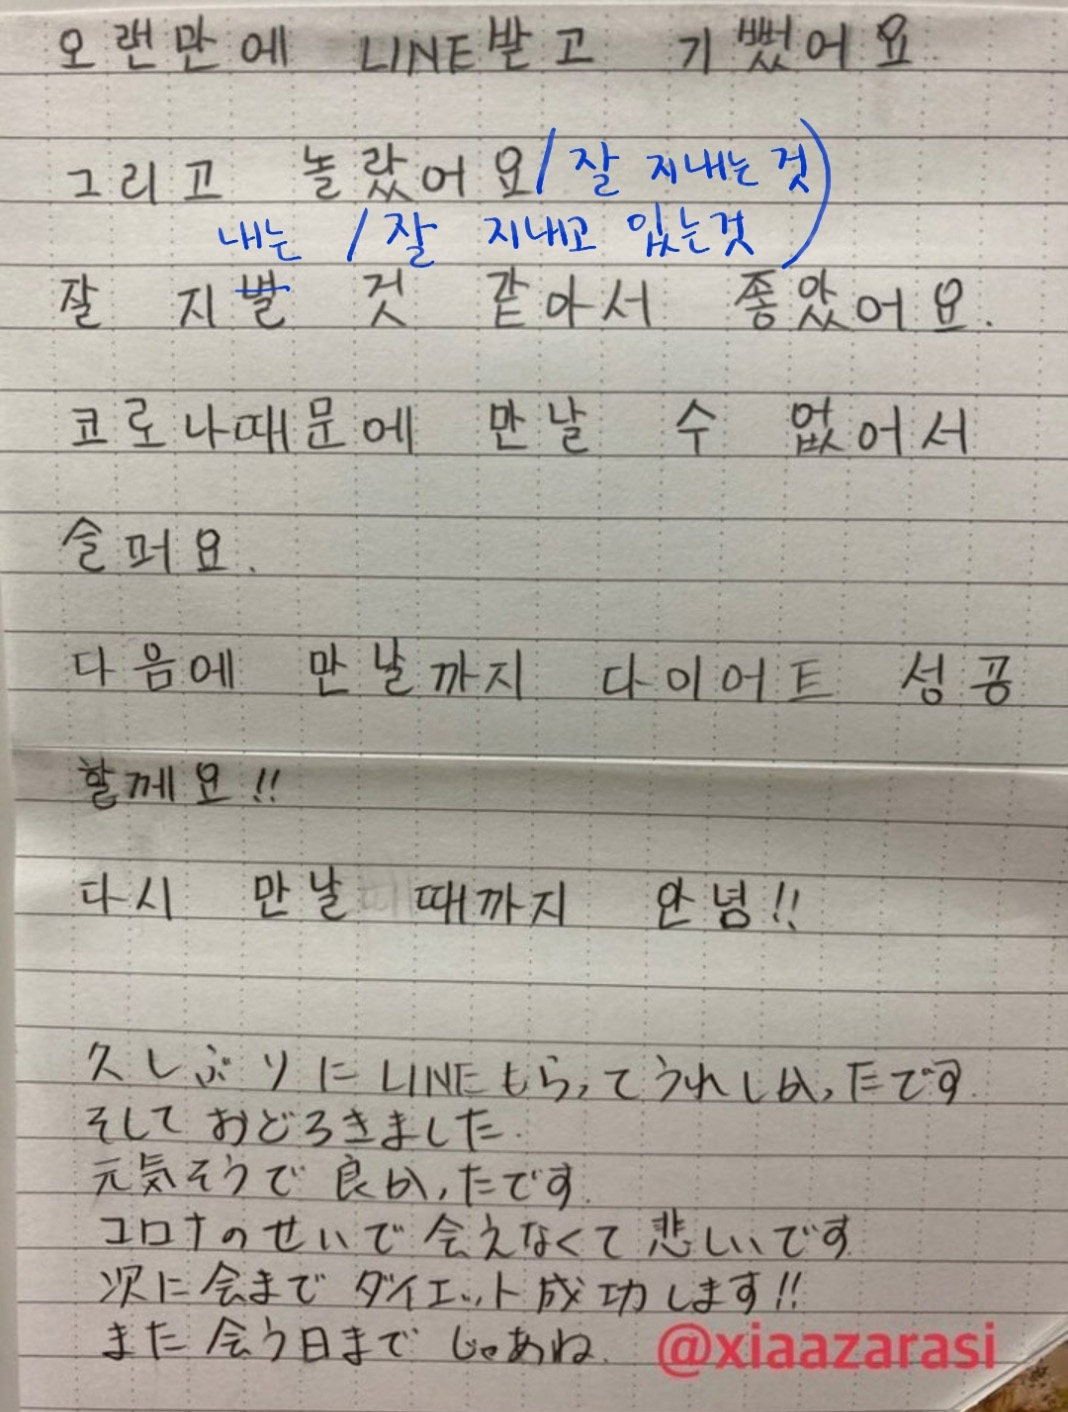 오랜만에 LINE받고 기뻤어요
그리고 놀랐어요/잘 지내는 것)
내는 /잘 지내고 있는것
잘 지벌 것 같아서 좋았어요.
코로나때문에 만날 수 없어서
슬퍼요.
다음에 만날까지 다이어트 성공
할께요!!
다시 만날 때까지 안녕!!
久しぶりにLINEもらってうれしかったです
そしておどろきました.
元気そうで良かったです.
コロナのせいで会えなくて悲しいです
次に会まで ダイエット成功します!!
また会う日まで じゃあね.
@xiaazarasi